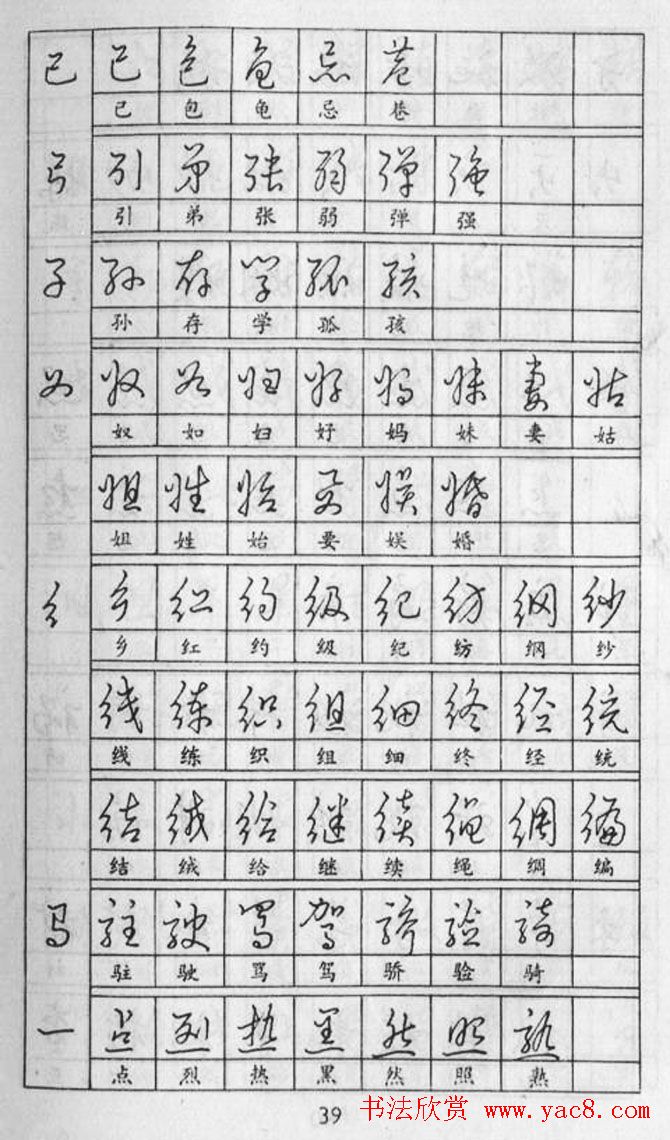 已 已 包 龟 忌 巷
已 包 龟 忌 巷
弓 引 弟 张 弱 弹 强
引 弟 张 弱 弹 强
子 孙 存 学 孤 孩
孙 存 学 孤 孩
女 奴 如 妇 好 妈 妹 妻 姑
奴 如 妇 好 妈 妹 妻 姑
姐 姓 始 要 娱 婚
姐 姓 始 要 娱 婚
纟 乡 红 约 级 纪 纺 纲 纱
乡 红 约 级 纪 纺 纲 纱
线 练 织 组 细 终 经 统
线 练 织 组 细 终 经 统
结 绒 给 继 续 绳 绸 编
结 绒 给 继 续 绳 绸 编
马 驻 驶 骂 驾 骄 验 骑
驻 驶 骂 驾 骄 验 骑
一 点 烈 热 黑 然 照 熟
点 烈 热 黑 然 照 熟
39
书法欣赏 www.yac8.com